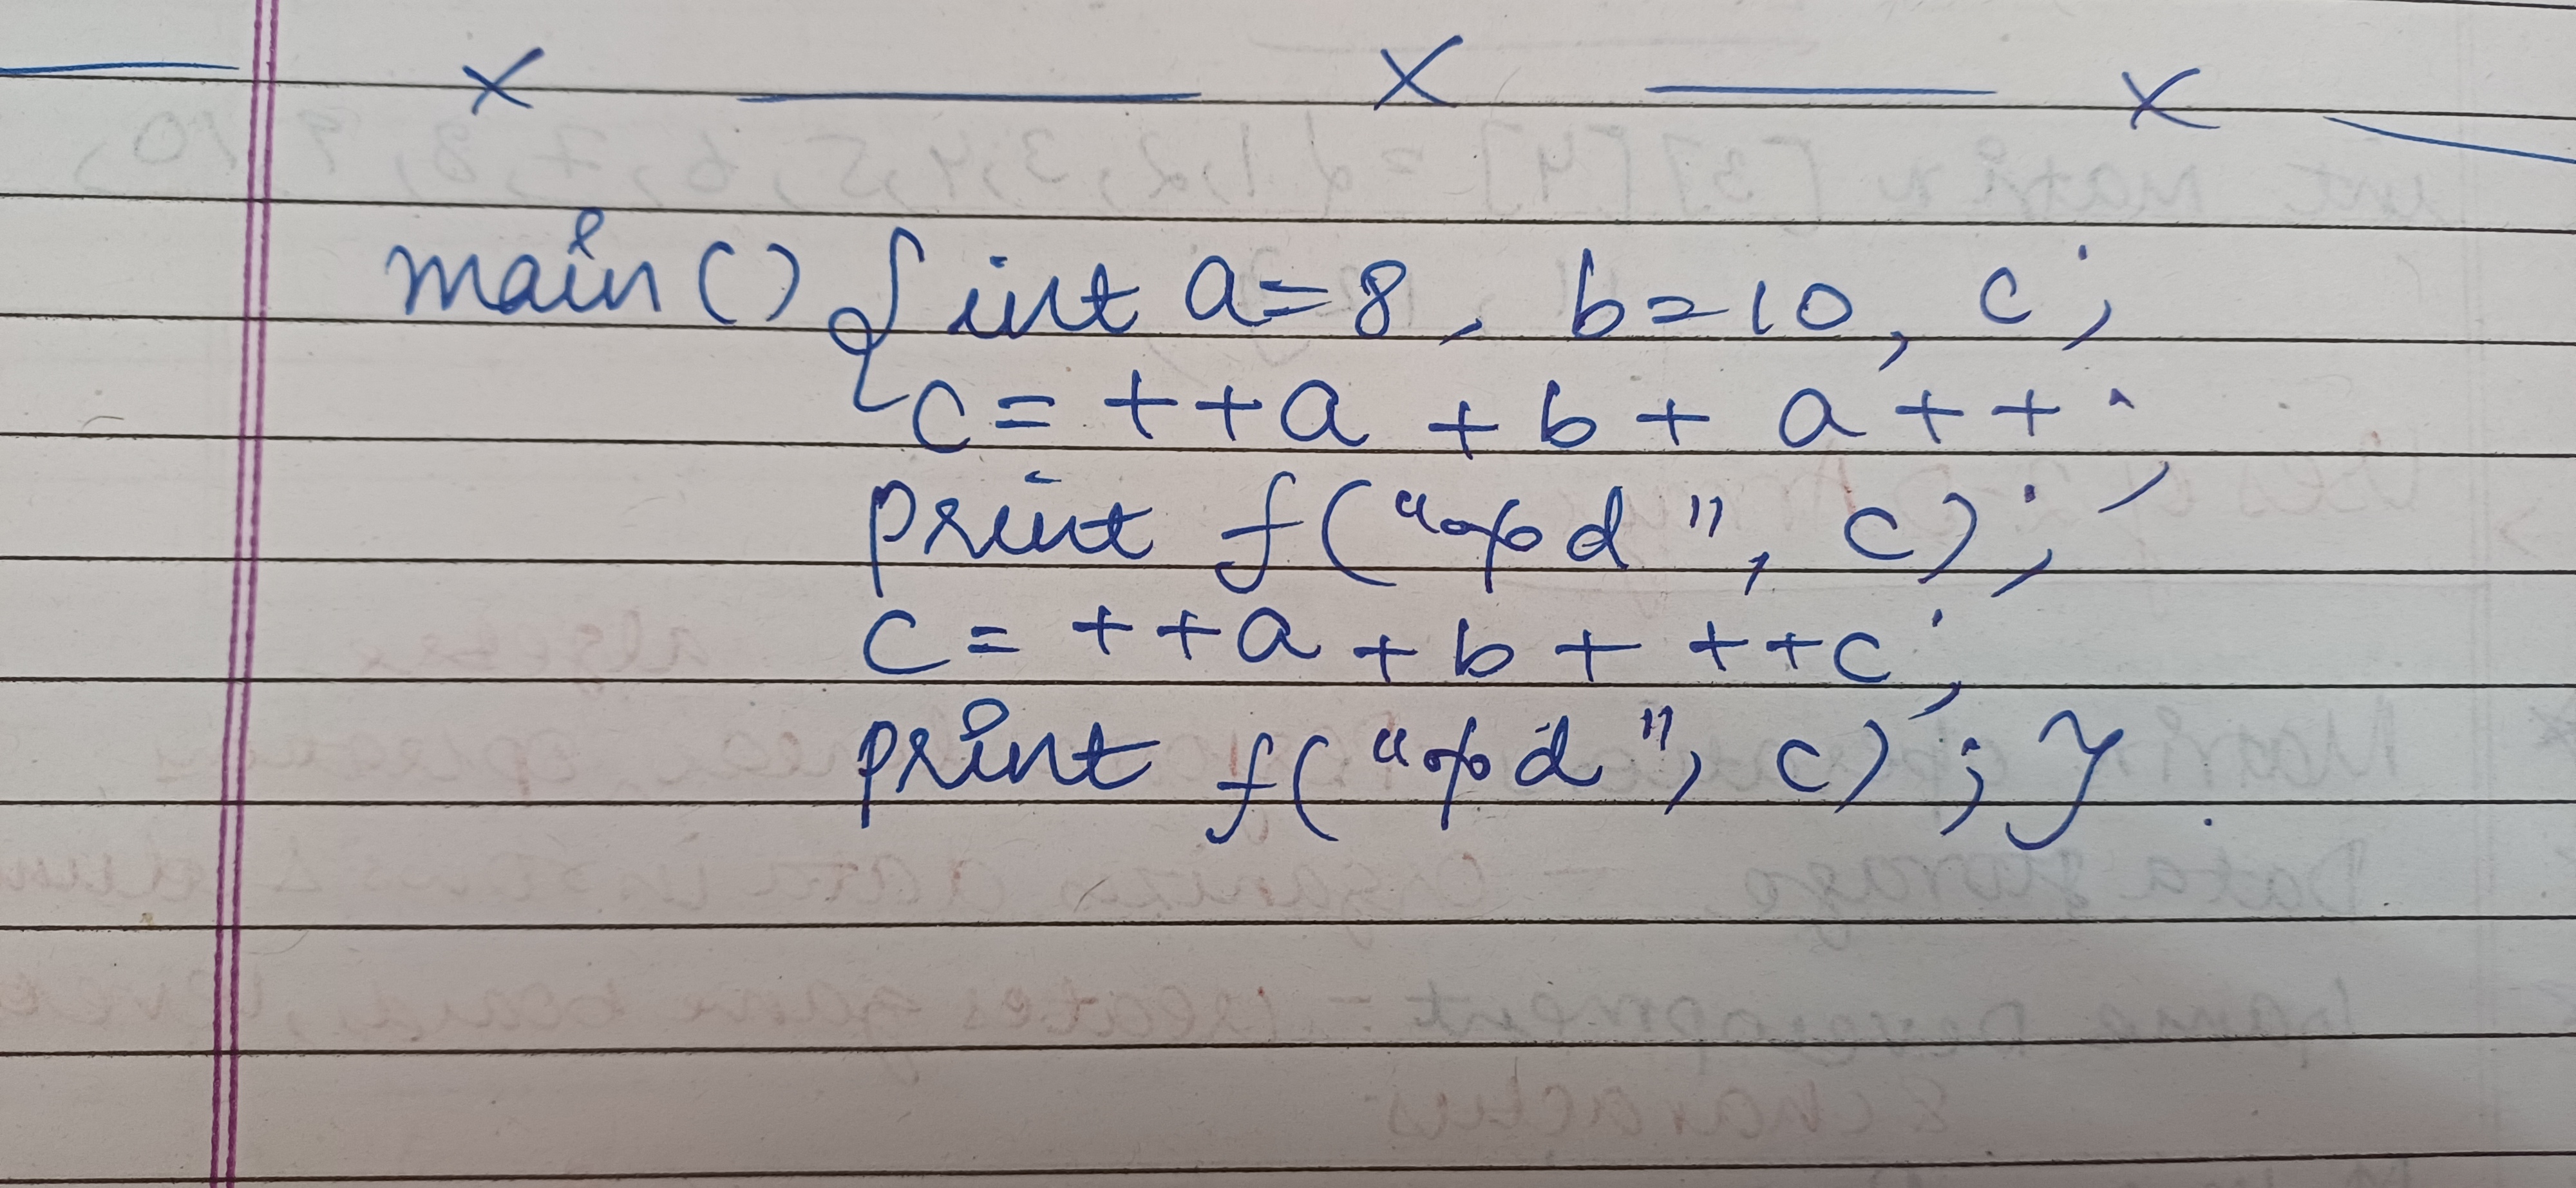 main() { int a=8, b=10, c;
c = ++a + b + a++;
printf("%d", c);
c = ++a + b + ++c;
printf("%d", c); }